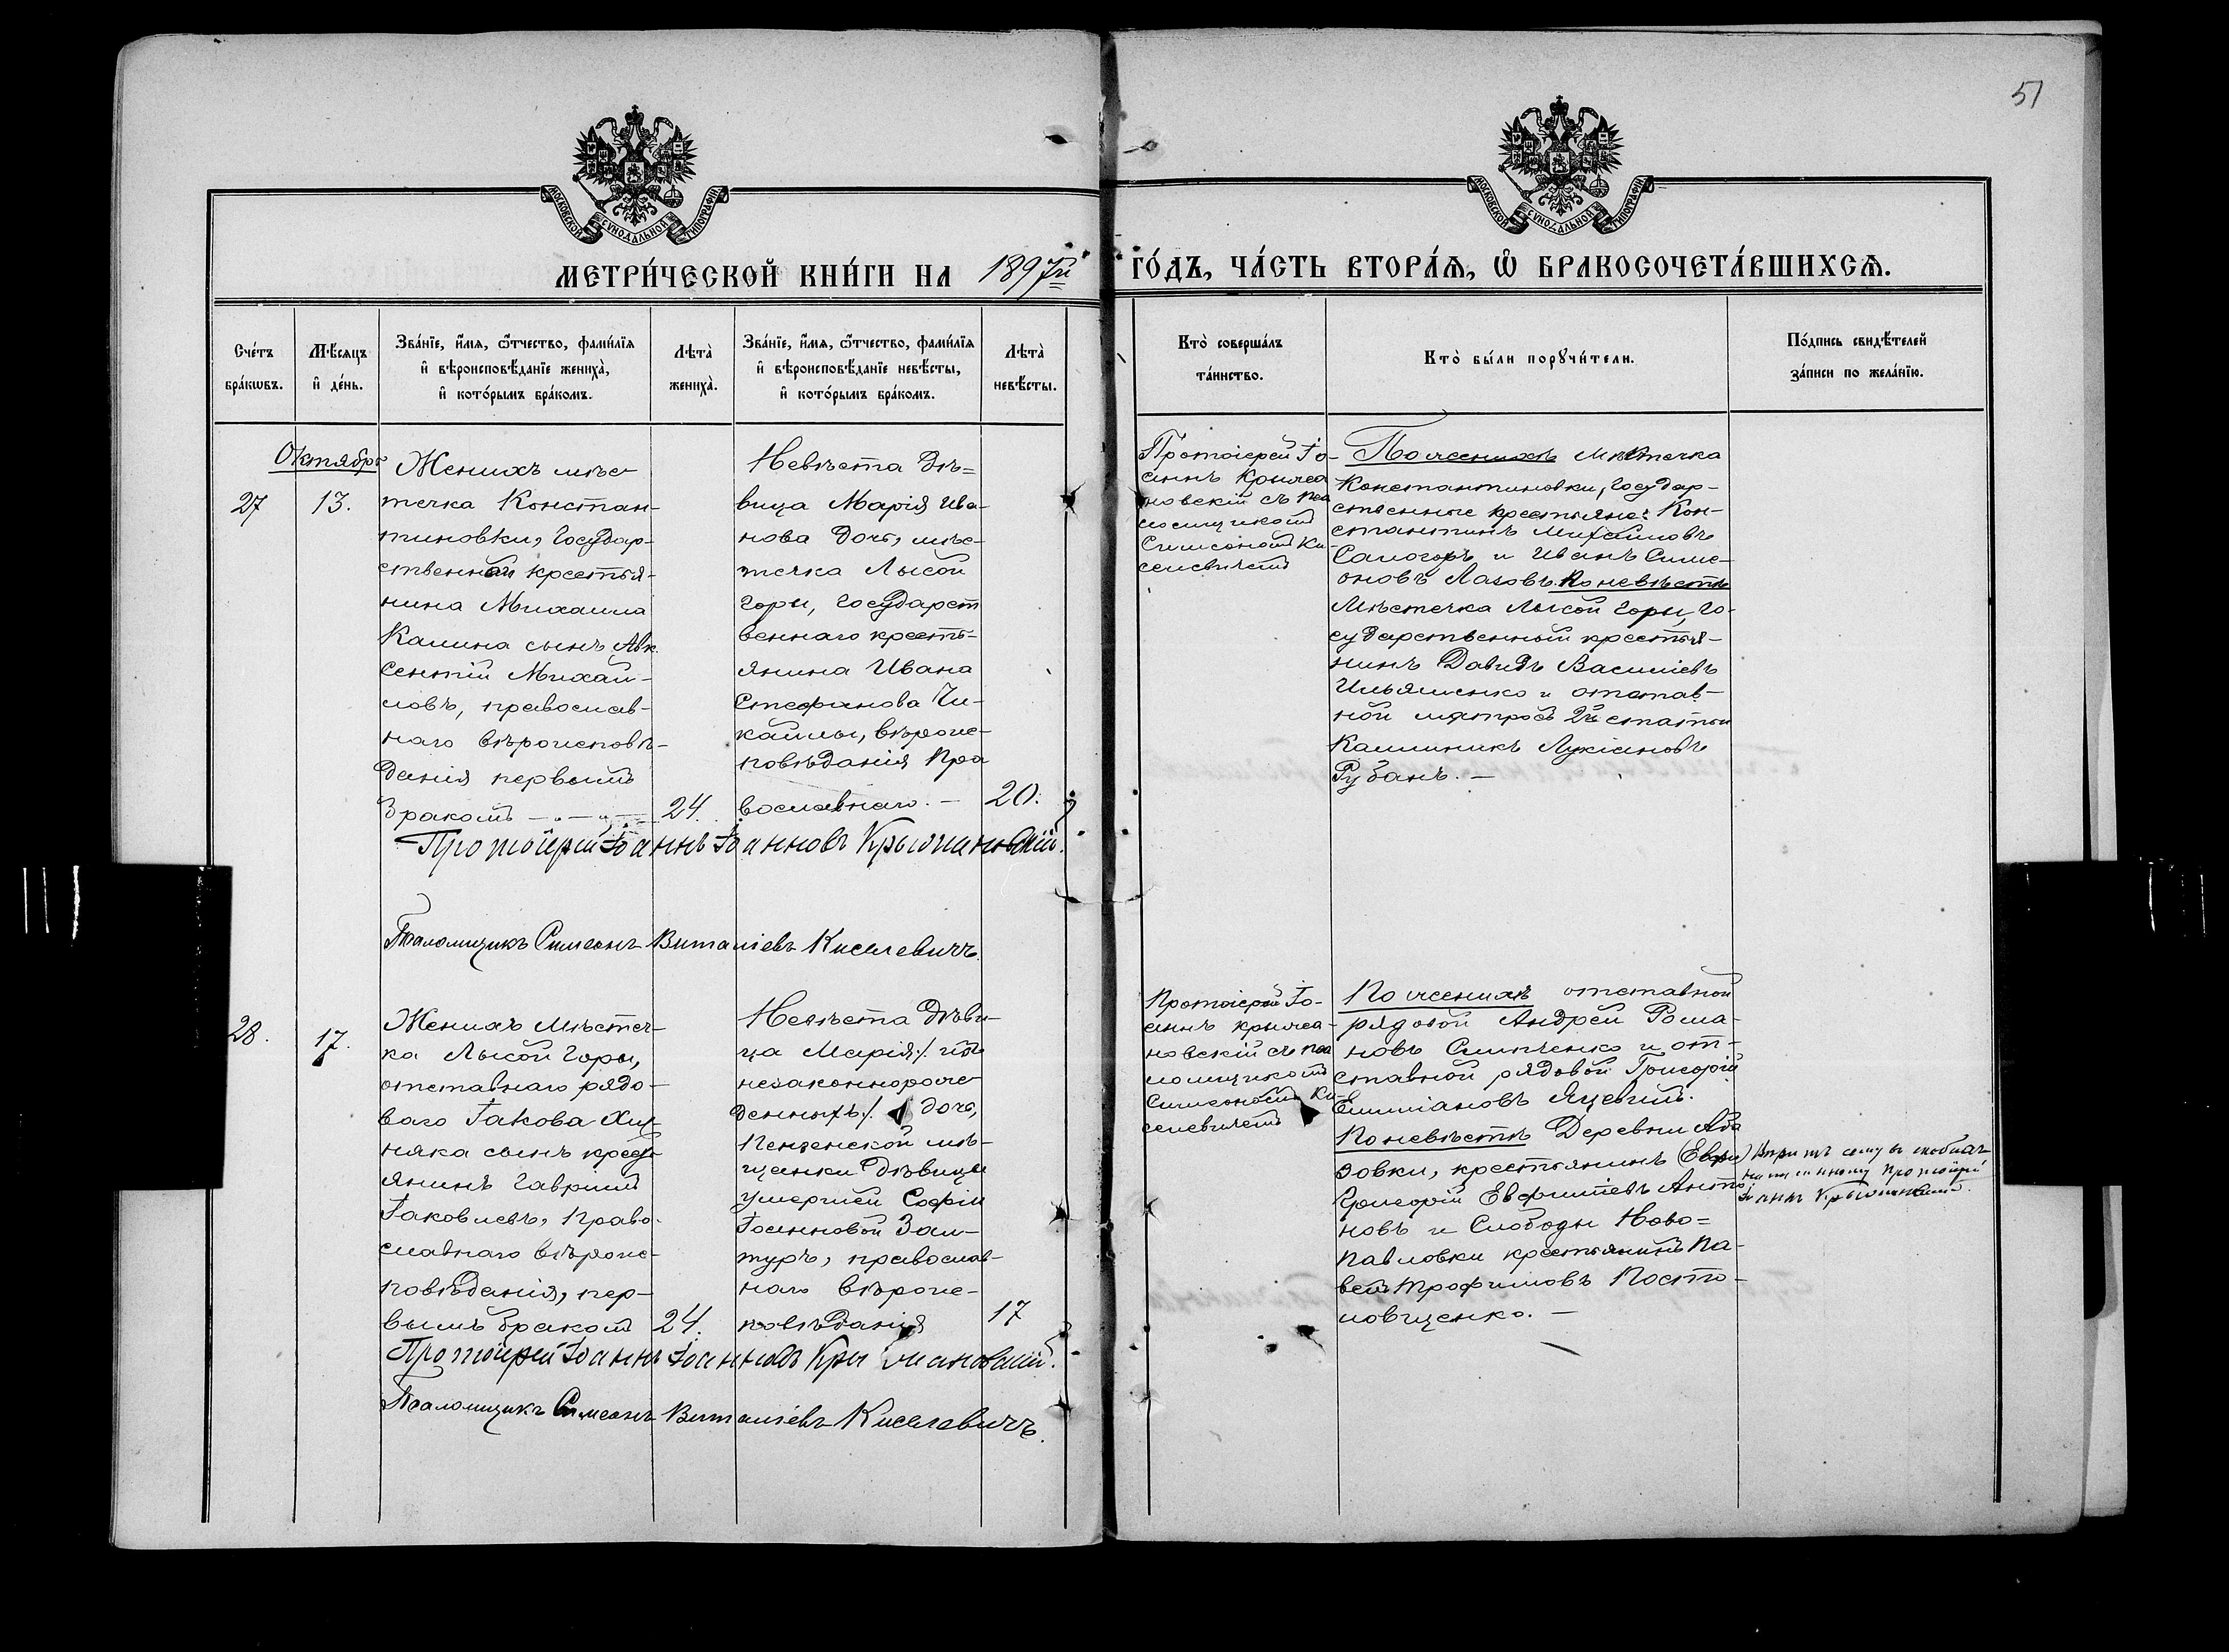 51
МОСКОВСКОЙ СѴНОДАЛЬНОЙ ТИПОГРАФІИ
МОСКОВСКОЙ СѴНОДАЛЬНОЙ ТИПОГРАФІИ
МЕТРИ́ЧЕСКОЙ КНИ́ГИ НА 1897й
ГО́ДЪ, ЧА́СТЬ ВТОРА́Ѧ, Ѽ БРАКОСОЧЕТА́ВШИХСѦ.
Сче́тъ бра́кѡвъ.
Мѣ́сѧцъ и҆ де́нь.
Зва́нїе, и҆́мѧ, ѻ҆́тчество, фами́лїѧ
и҆ вѣроисповѣ́данїе жениха̀,
и҆ кото́рымъ бра́комъ.
Лѣта̀ жениха̀.
Зва́нїе, и҆́мѧ, ѻ҆́тчество, фами́лїѧ
и҆ вѣроисповѣ́данїе невѣ́сты,
и҆ кото́рымъ бра́комъ.
Лѣта̀ невѣ́сты.
Кто̀ соверша́лъ
та́инство.
Кто̀ бы́ли порꙋчи́тели.
По́дпись свидѣ́телей
за́писи по жела́нїю.
Октябрь
27
13.
Женихъ мѣс-
течка Констан-
тиновки, государ-
ственнаго крестья-
нина Михаила
Калина сынъ Авк-
сентій Михай-
ловъ, православ-
наго вѣроисповѣ-
данія первымъ
бракомъ
24.
Невѣста дѣ=
вица Марія Ива-
нова дочь, мѣс-
течка Лысой
Горы, государст
веннаго кресть-
янина Ивана
Стефанова Чи-
кайлы, вѣроис-
повѣданія Пра
вославнаго. —
20.
Протоіерей Іо-
аннъ Крыжа
новскій съ пса
ломщикомъ
Симеономъ Ки-
селевичемъ
По женихѣ Мѣстечка
Константиновки, государ-
ственные крестьяне: Кон-
стантинъ Михайловъ
Самогоръ и Иванъ Симе-
оновъ Лаховъ. По невѣстѣ
Мѣстечка Лысой Горы, го-
сударственный крестья-
нинъ Давидъ Василіевъ
Ильяшенко и отстав-
ной матросъ 2й статьи
Каллиникъ Лукіановъ
Рубанъ. —
Протоіерей Іоаннъ Іоанновъ Крыжановскій.
Псаломщикъ Симеонъ Виталіевъ Киселевичъ.
28.
17.
Женихъ Мѣстеч-
ка Лысой Горы,
отставнаго рядо-
ваго Іакова
сынъ кресть
янинъ Гавріилъ
Іаковлевъ, Право-
славнаго вѣроис-
повѣданія, пер-
вымъ бракомъ
24.
Невѣста дѣви-
ца Марія /. изъ
незаконнорож-
денныхъ /. дочь,
Пензенской мѣ-
щанки дѣвицы
умершей Софіи
Іоанновой Зам-
туръ, православ-
наго вѣроис-
повѣданія
17
Протоіерей Іо-
аннъ Крыжа-
новскій съ пса
ломщикомъ
Симеономъ Ки-
селевичемъ
По женихѣ отставной
рядовой Андрей Рома-
новъ Слипченко и от-
ставной рядовой Григорій
Емиліановъ Яцевий.
По невѣстѣ Деревни Аба
зовки, крестьянинъ (Евфи)
Григорій Евфиміевъ Анто
новъ и Слободы Ново=
павловки крестьянинъ Па-
велъ Трофимовъ Посто-
ловщенко. —
Вѣрить сему въ скобкахъ
Протоіерей
Іоаннъ Крыжановскій.
Протоіерей Іоаннъ Іоанновъ Крыжановскій.
Псаломщикъ Симеонъ Виталіевъ Киселевичъ.